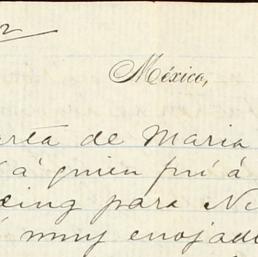 México,
de Maria
á quien fuí á
para
muy enojad